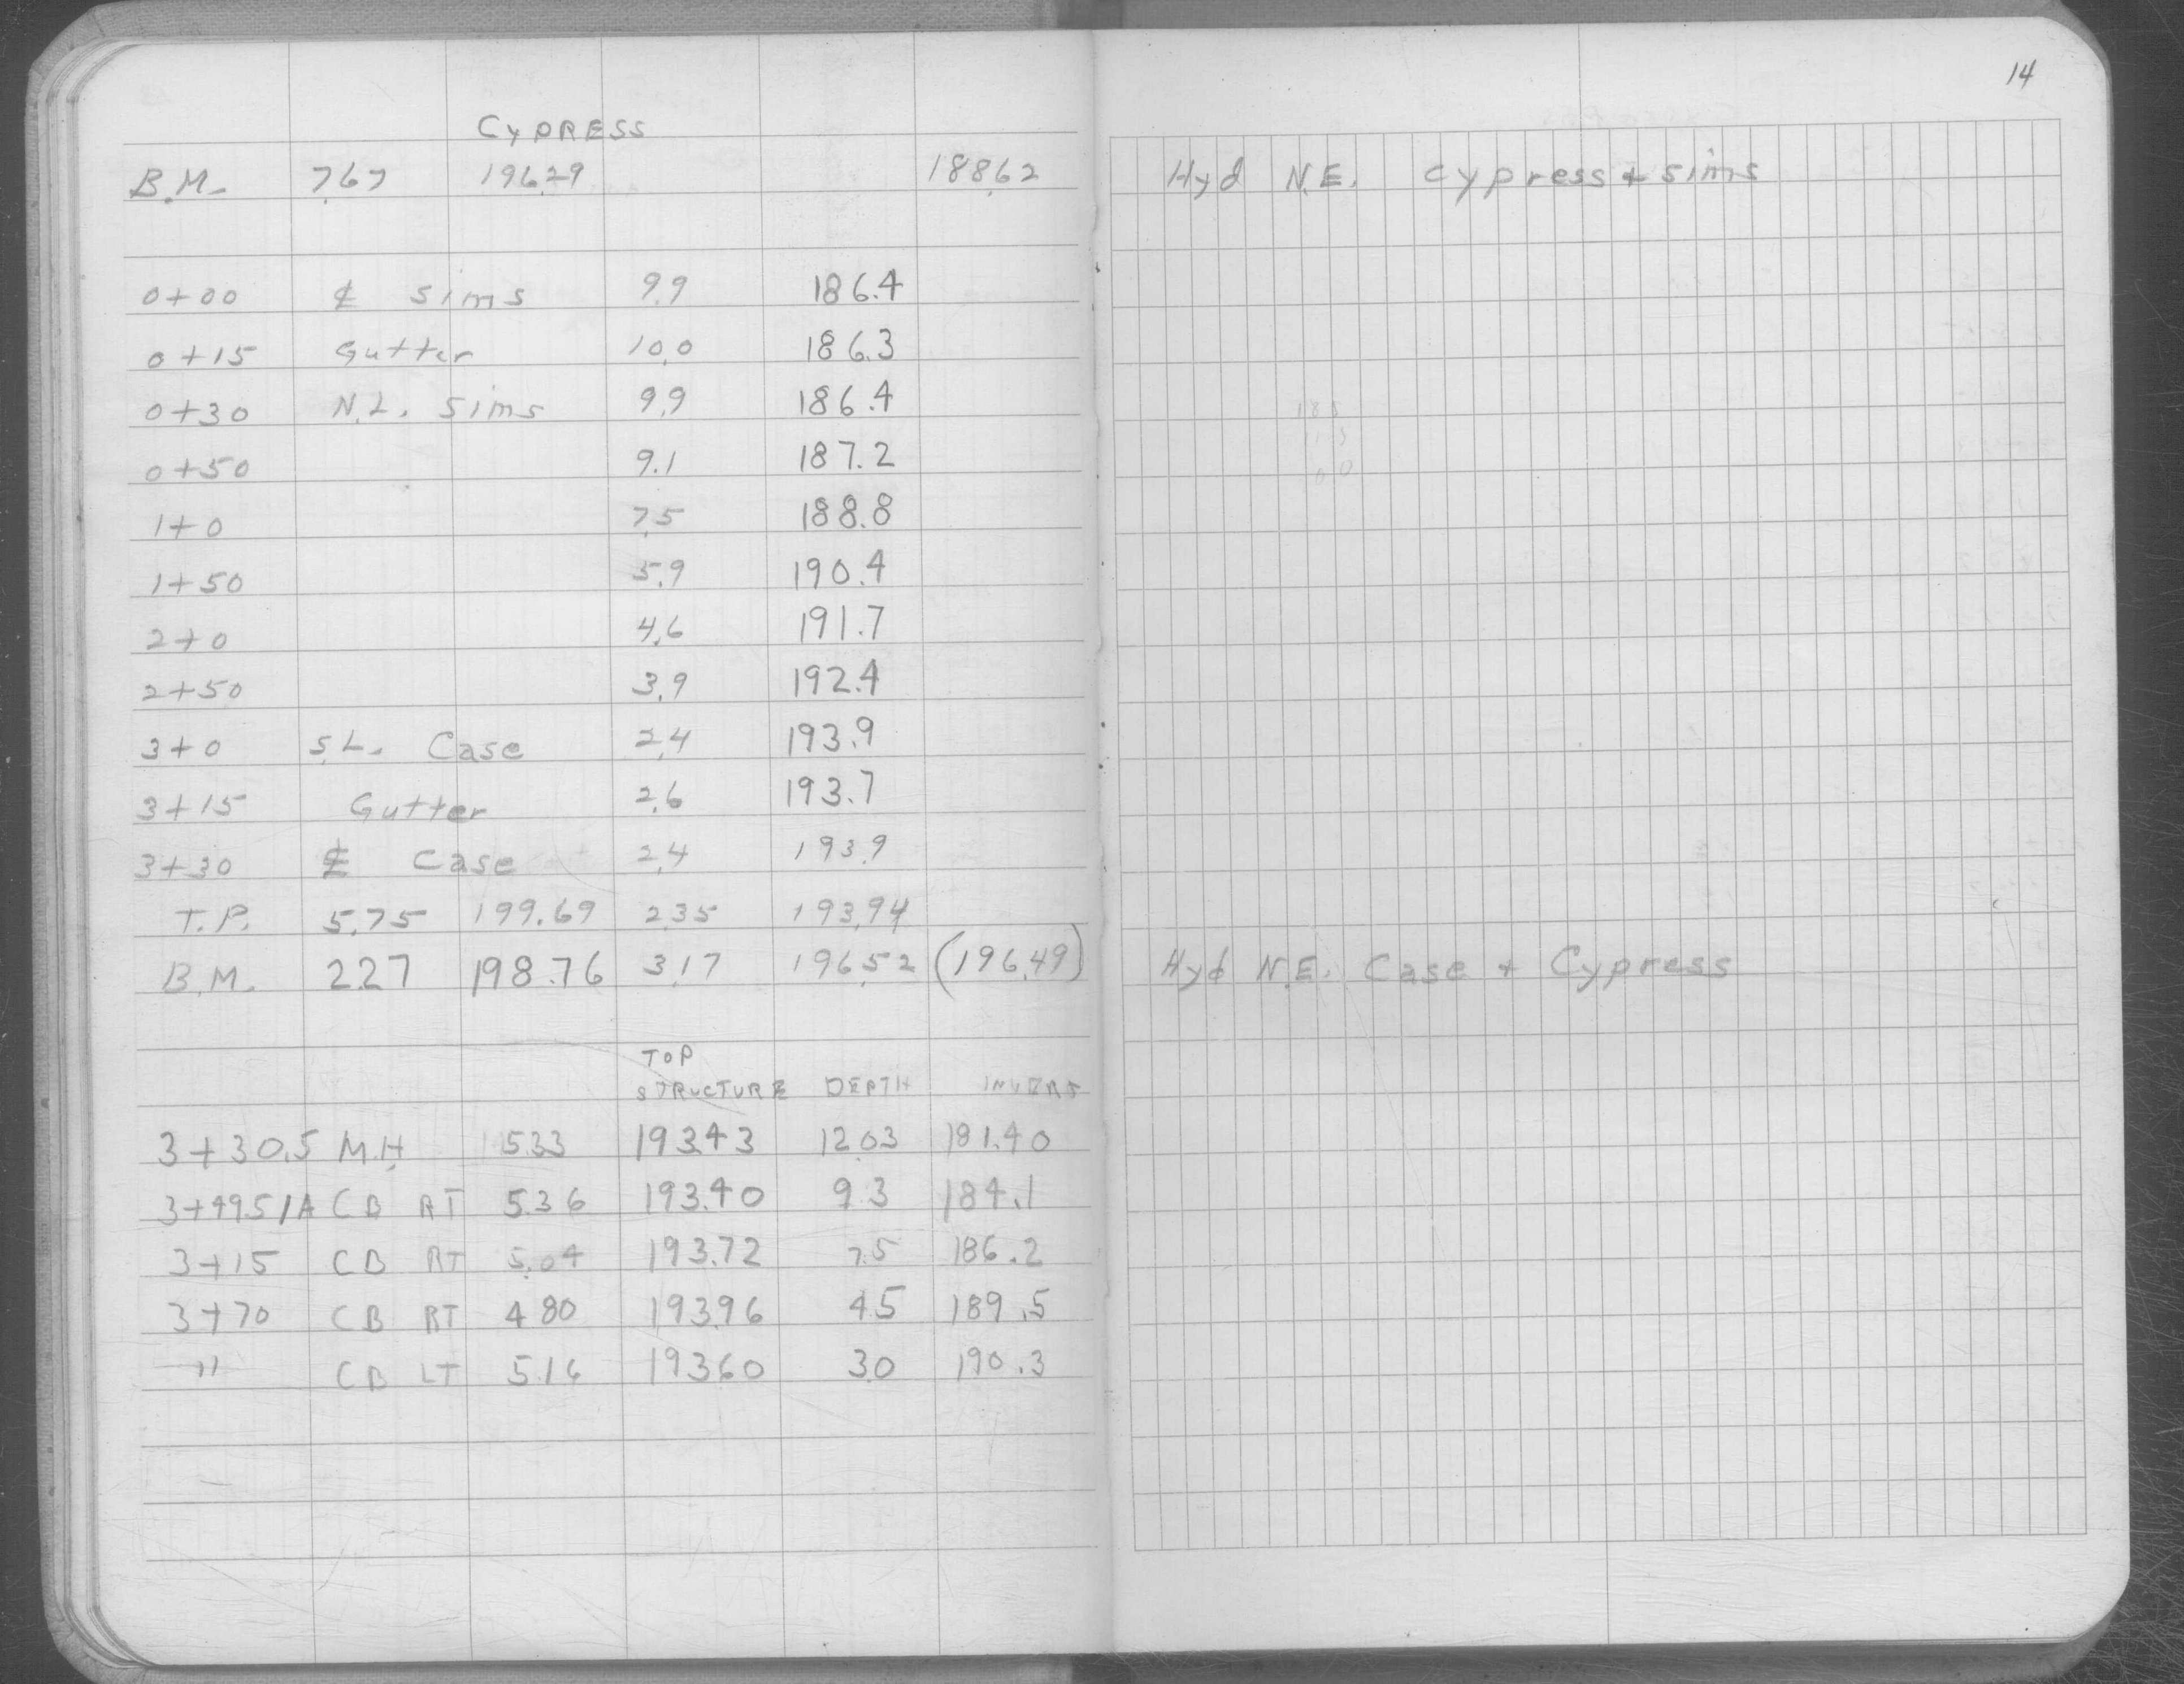 14
CYPRESS
B.M. 7.67 196.29 188.62 Hyd N.E. Cypress + Sims
0+00 ℄ Sims 9.9 186.4
0+15 Gutter 10.0 186.3
0+30 N.L. Sims 9.9 186.4
0+50 9.1 187.2
1+0 7.5 188.8
1+50 5.9 190.4
2+0 4.6 191.7
2+50 3.9 192.4
3+0 S.L. Case 2.4 193.9
3+15 Gutter 2.6 193.7
3+30 ℄ Case 2.4 193.9
T.P. 5.75 199.69 2.35 193.94
B.M. 2.27 198.76 3.17 196.52 (196.49) Hyd N.E. Case + Cypress
TOP
STRUCTURE DEPTH INVERT
3+30.5 M.H 5.33 193.43 12.03 181.40
3+49.5/A CB RT 5.36 193.40 9.3 184.1
3+15 CB RT 5.04 193.72 7.5 186.2
3+70 CB RT 4.80 193.96 4.5 189.5
" CB LT 5.16 193.60 3.0 190.3